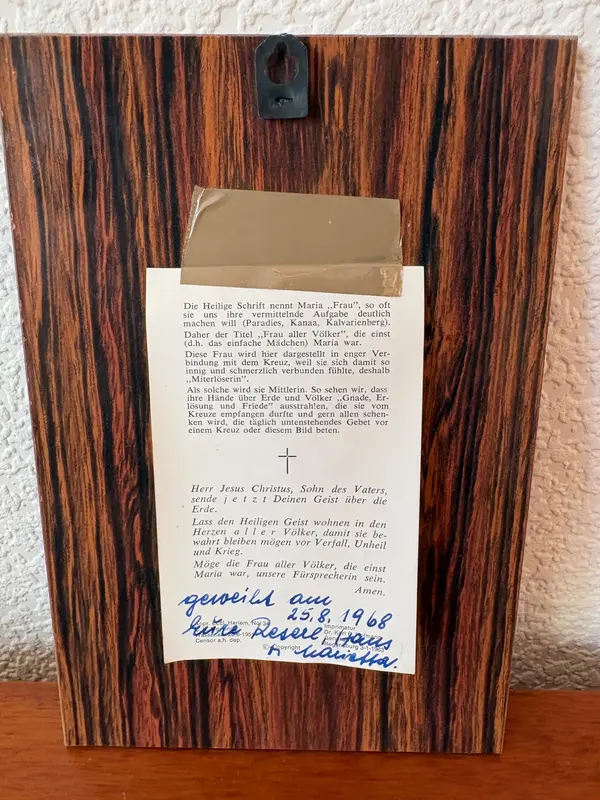 Die Heilige Schrift nennt Maria „Frau", so oft
sie uns ihre vermittelnde Aufgabe deutlich
machen will (Paradies, Kanaa, Kalvarienberg).
Daher der Titel „Frau aller Völker", die einst
(d.h. das einfache Mädchen) Maria war.
Diese Frau wird hier dargestellt in enger Ver-
bindung mit dem Kreuz, weil sie sich damit so
innig und schmerzlich verbunden fühlte, deshalb
„Miterlöserin".
Als solche wird sie Mittlerin. So sehen wir, dass
ihre Hände über Erde und Völker „Gnade, Er-
lösung und Friede" ausstrahlen, die sie vom
Kreuze empfangen durfte und gern allen schen-
ken wird, die täglich untenstehendes Gebet vor
einem Kreuz oder diesem Bild beten.
Herr Jesus Christus, Sohn des Vaters,
sende j e t z t Deinen Geist über die
Erde.
Lass den Heiligen Geist wohnen in den
Herzen a l l e r Völker, damit sie be-
wahrt bleiben mögen vor Verfall, Unheil
und Krieg.
Möge die Frau aller Völker, die einst
Maria war, unsere Fürsprecherin sein.
Amen.
geweiht am
25.8.1968
Reserl, Hans
Marietta.
Imprimatur
Censor a.h. dep.
© Copyright